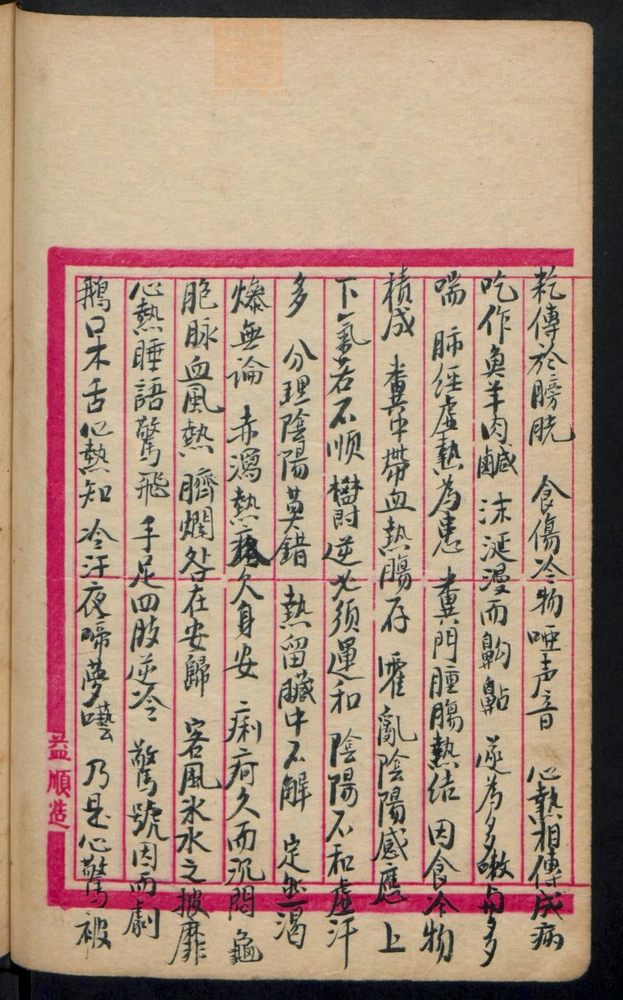 乾傳於膀胱 食傷冷物啞声音 心熱相傳成病
吃作魚羊肉鹹 沫涎漫而齁鮎 遂为多嗽与多
喘 肺经虛熱為患 糞門腫腸熱结 因食冷物
積成 糞中帶血熱腸存 霍亂陰陽感應 上
下氣若不順 欝逆必须運和 陰陽不和虛汗
多 分理陰陽莫錯 熱留臟中不解 定然渴
燥無論 赤瀉熱 久身安 痢疴久而沉悶 龜
胞脉血風熱 臍爛咎在安歸 客風水水之披靡
心熱睡語驚飛 手足四肢逆冷 驚號因而劇
鵝口木舌心熱知 冷汗夜啼夢囈 乃是心驚被
益順造